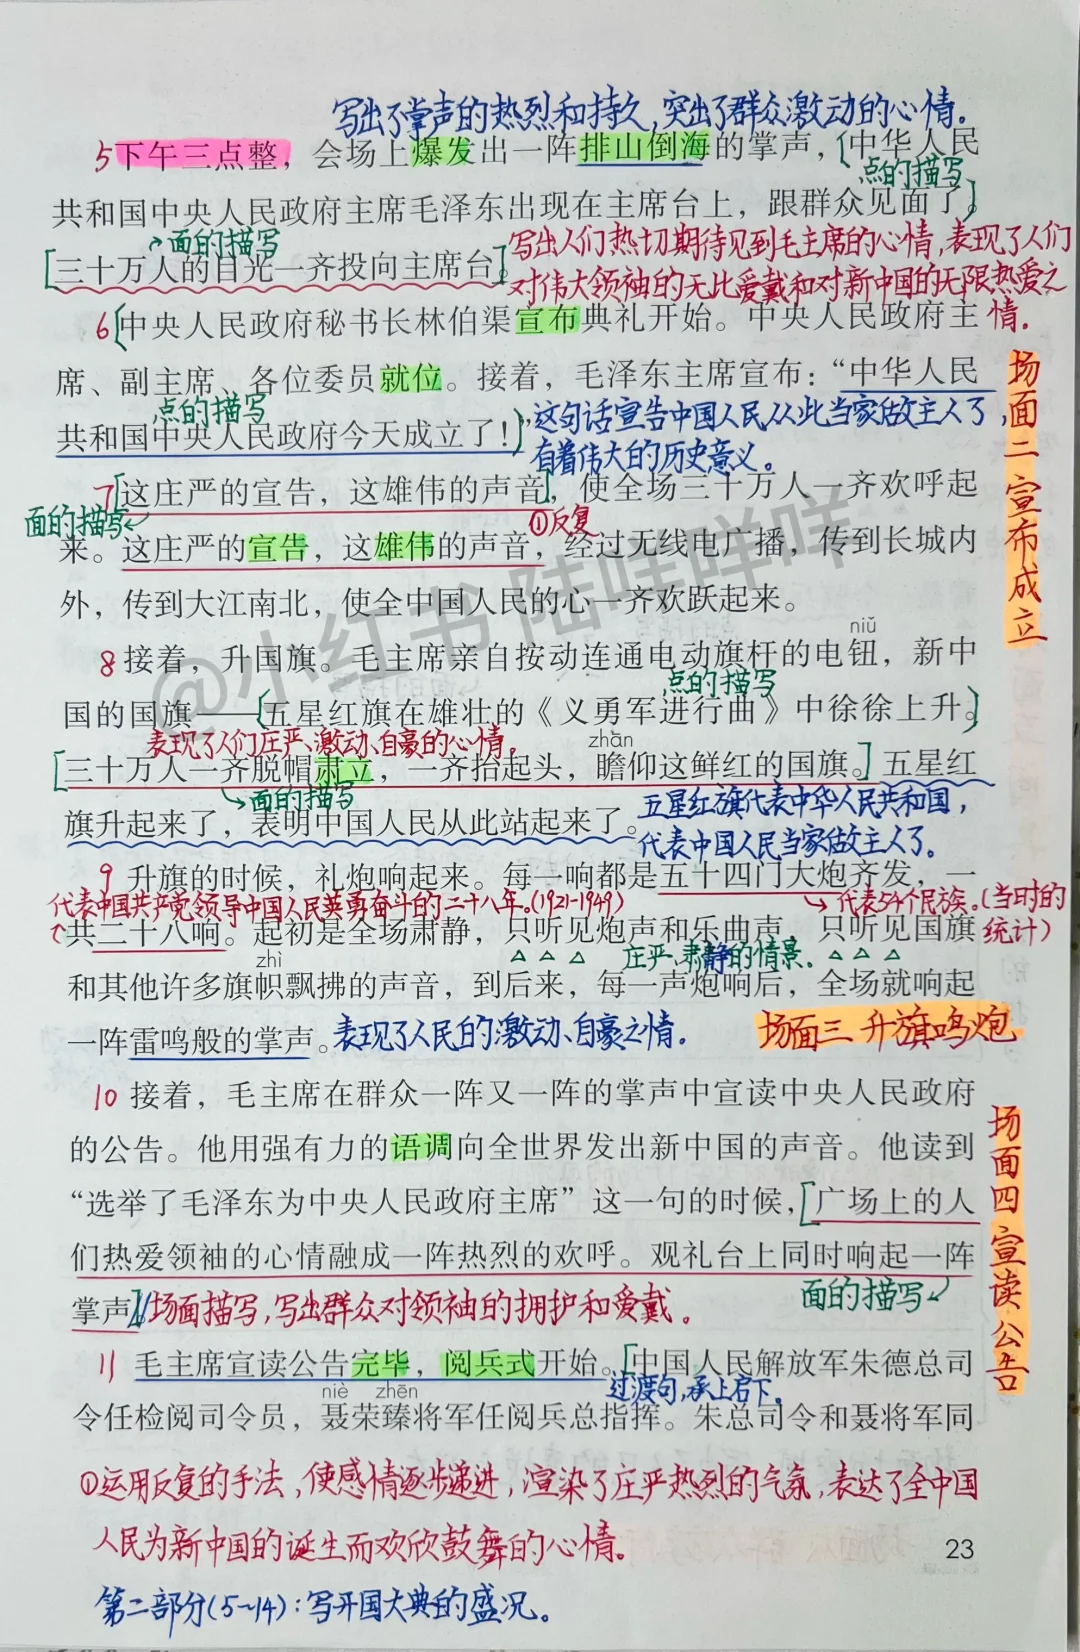 写出了掌声的热烈和持久,突出了群众激动的心情.
5下午三点整，会场上爆发出一阵排山倒海的掌声，{中华人民
点的描写
共和国中央人民政府主席毛泽东出现在主席台上，跟群众见面了}
面的描写
[三十万人的目光一齐投向主席台]。
写出人们热切期待见到毛主席的心情,表现了人们
对伟大领袖的无比爱戴和对新中国的无限热爱之
情.
6{中央人民政府秘书长林伯渠宣布典礼开始。中央人民政府主
席、副主席、各位委员就位。接着，毛泽东主席宣布：“中华人民
点的描写
共和国中央人民政府今天成立了！}”
这句话宣告中国人民从此当家做主人了,
有着伟大的历史意义。
场面二 宣布成立
7[这庄严的宣告，这雄伟的声音]，使全场三十万人一齐欢呼起
面的描写
①反复
来。这庄严的宣告，这雄伟的声音，经过无线电广播，传到长城内
外，传到大江南北，使全中国人民的心一齐欢跃起来。
niǔ
8接着，升国旗。毛主席亲自按动连通电动旗杆的电钮，新中
点的描写
国的国旗——{五星红旗在雄壮的《义勇军进行曲》中徐徐上升。}
表现了人们庄严、激动、自豪的心情。
zhān
[三十万人一齐脱帽肃立，一齐抬起头，瞻仰这鲜红的国旗。]五星红
面的描写
旗升起来了，表明中国人民从此站起来了。
五星红旗代表中华人民共和国,
代表中国人民当家做主人了。
9 升旗的时候，礼炮响起来。每一响都是五十四门大炮齐发，一
代表中国共产党领导中国人民英勇奋斗的二十八年。(1921-1949)
代表54个民族。(当时的
统计)
共二十八响。起初是全场肃静，只听见炮声和乐曲声，只听见国旗
庄严、肃静的情景。
zhì
和其他许多旗帜飘拂的声音，到后来，每一声炮响后，全场就响起
一阵雷鸣般的掌声。
表现了人民的激动、自豪之情.
场面三 升旗鸣炮
10 接着，毛主席在群众一阵又一阵的掌声中宣读中央人民政府
的公告。他用强有力的语调向全世界发出新中国的声音。他读到
“选举了毛泽东为中央人民政府主席”这一句的时候，[广场上的人
们热爱领袖的心情融成一阵热烈的欢呼。观礼台上同时响起一阵
面的描写
掌声]。
场面描写,写出群众对领袖的拥护和爱戴.
场面四 宣读公告
11 毛主席宣读公告完毕，阅兵式开始。[中国人民解放军朱德总司
过渡句,承上启下.
niè zhēn
令任检阅司令员，聂荣臻将军任阅兵总指挥。朱总司令和聂将军同
①运用反复的手法,使感情逐步递进,渲染了庄严热烈的气氛,表达了全中国
人民为新中国的诞生而欢欣鼓舞的心情。
23
第二部分(5~14):写开国大典的盛况。
@小红书 陆哇咩咩